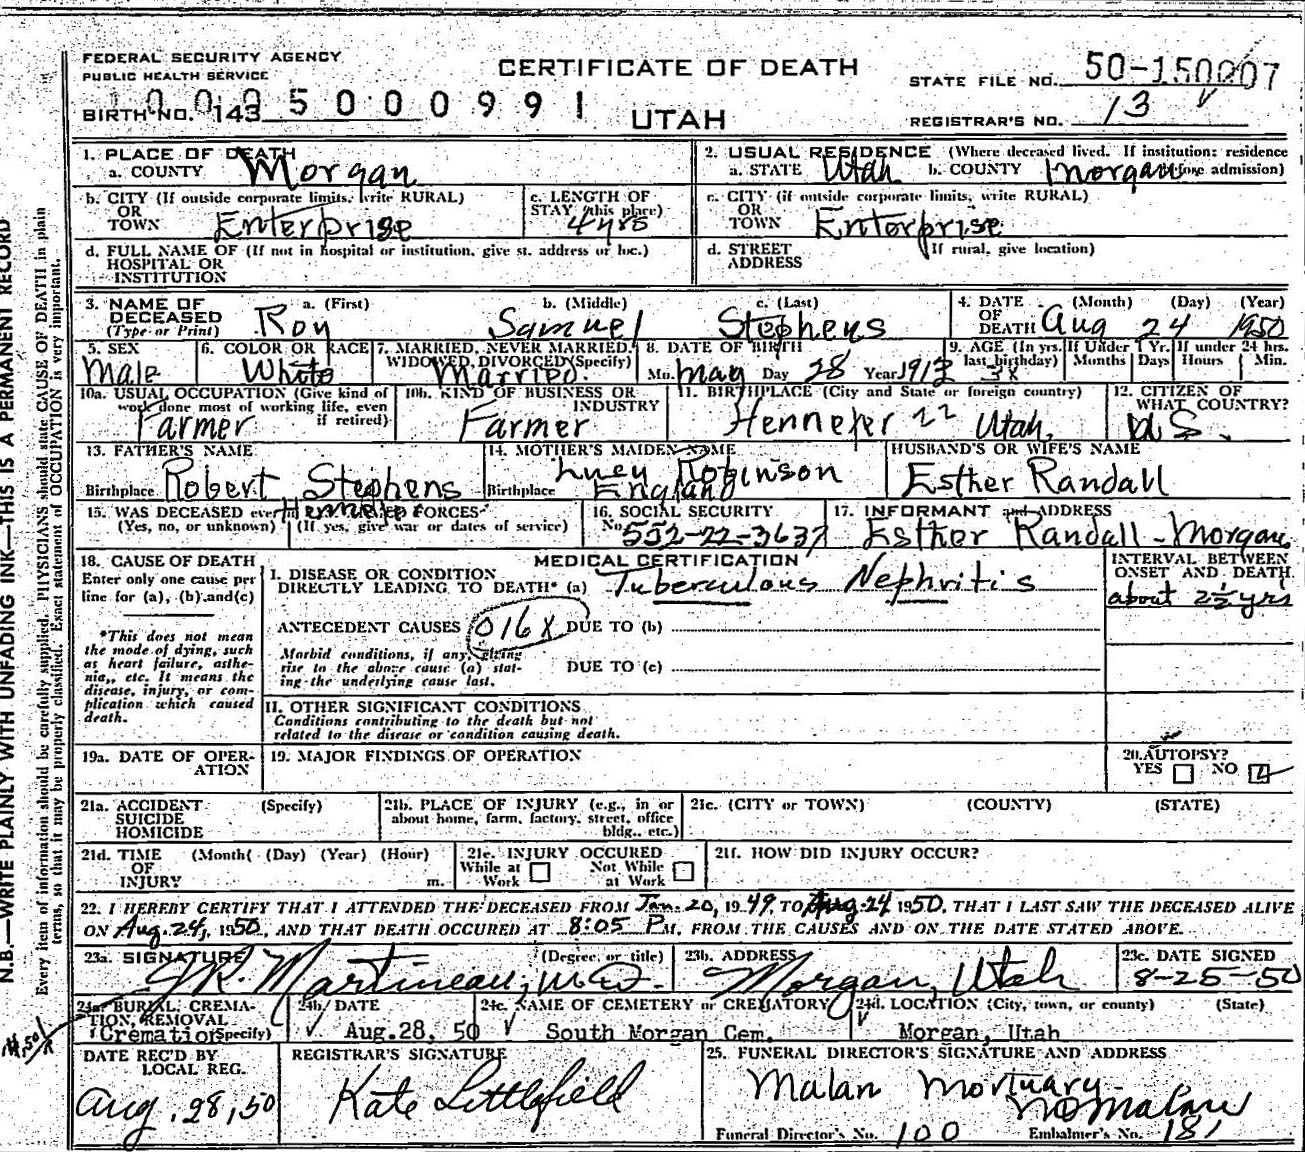 FEDERAL SECURITY AGENCY
PUBLIC HEALTH SERVICE
CERTIFICATE OF DEATH
STATE FILE NO. 50-150007
BIRTH NO. 143 5000991
UTAH
REGISTRAR'S NO. 13
1. PLACE OF DEATH
a. COUNTY Morgan
2. USUAL RESIDENCE (Where deceased lived. If institution: residence before admission)
a. STATE Utah b. COUNTY Morgan
b. CITY (If outside corporate limits, write RURAL) OR TOWN Enterprise
c. LENGTH OF STAY (this place) 4 yrs
c. CITY (if outside corporate limits, write RURAL) OR TOWN Enterprise
d. FULL NAME OF (If not in hospital or institution, give st. address or loc.) HOSPITAL OR INSTITUTION
d. STREET ADDRESS (If rural, give location)
3. NAME OF DECEASED (Type or Print) a. (First) Roy b. (Middle) Samuel c. (Last) Stephens
4. DATE OF DEATH (Month) (Day) (Year) Aug 24 1950
5. SEX Male
6. COLOR OR RACE White
7. MARRIED, NEVER MARRIED, WIDOWED, DIVORCED (Specify) Married
8. DATE OF BIRTH Mo. May Day 28 Year 1912
9. AGE (In yrs. last birthday) 38 If Under 1 Yr. Months Days If under 24 hrs. Hours Min.
10a. USUAL OCCUPATION (Give kind of work done most of working life, even if retired) Farmer
10b. KIND OF BUSINESS OR INDUSTRY Farmer
11. BIRTHPLACE (City and State or foreign country) Hennefer Utah.
12. CITIZEN OF WHAT COUNTRY? U.S.
13. FATHER'S NAME Robert Stephens
Birthplace Hennefer
14. MOTHER'S MAIDEN NAME Lucy Robinson
Birthplace England
HUSBAND'S OR WIFE'S NAME Esther Randall
15. WAS DECEASED EVER FORCES (Yes, no, or unknown) (If yes, give war or dates of service)
16. SOCIAL SECURITY No. 552-22-3637
17. INFORMANT and ADDRESS Esther Randall - Morgan
18. CAUSE OF DEATH
Enter only one cause per line for (a), (b) and (c)
*This does not mean the mode of dying, such as heart failure, asthenia, etc. It means the disease, injury, or complication which caused death.
MEDICAL CERTIFICATION
I. DISEASE OR CONDITION DIRECTLY LEADING TO DEATH* (a) Tuberculous Nephritis
INTERVAL BETWEEN ONSET AND DEATH about 2½ yrs
ANTECEDENT CAUSES 016X DUE TO (b)
Morbid conditions, if any, giving rise to the above cause (a) stating the underlying cause last. DUE TO (c)
II. OTHER SIGNIFICANT CONDITIONS
Conditions contributing to the death but not related to the disease or condition causing death.
19a. DATE OF OPERATION
19. MAJOR FINDINGS OF OPERATION
20. AUTOPSY? YES NO
21a. ACCIDENT SUICIDE HOMICIDE (Specify)
21b. PLACE OF INJURY (e.g., in or about home, farm, factory, street, office bldg., etc.)
21c. (CITY or TOWN) (COUNTY) (STATE)
21d. TIME OF INJURY (Month) (Day) (Year) (Hour) m.
21e. INJURY OCCURED While at Work Not While at Work
21f. HOW DID INJURY OCCUR?
22. I HEREBY CERTIFY THAT I ATTENDED THE DECEASED FROM Jan. 20, 1949 TO Aug. 24 1950, THAT I LAST SAW THE DECEASED ALIVE
ON Aug. 24, 1950, AND THAT DEATH OCCURED AT 8:05 P M, FROM THE CAUSES AND ON THE DATE STATED ABOVE.
23a. SIGNATURE (Degree or title) Martineau, M.D.
23b. ADDRESS Morgan, Utah
23c. DATE SIGNED 8-25-50
24a. BURIAL, CREMATION, REMOVAL (Specify) Cremation
24b. DATE Aug.28, 50
24c. NAME OF CEMETERY or CREMATORY South Morgan Cem.
24d. LOCATION (City, town, or county) (State) Morgan, Utah
DATE REC'D BY LOCAL REG. Aug. 28, 50
REGISTRAR'S SIGNATURE Kate Littlefield
25. FUNERAL DIRECTOR'S SIGNATURE AND ADDRESS
Malan Mortuary-
Malan
Funeral Director's No. 100 Embalmer's No. 181
N.B.—WRITE PLAINLY WITH UNFADING INK—THIS IS A PERMANENT RECORD
Every item of information should be carefully supplied. PHYSICIANS should state CAUSE OF DEATH in plain
terms, so that it may be properly classified. Exact statement of OCCUPATION is very important.